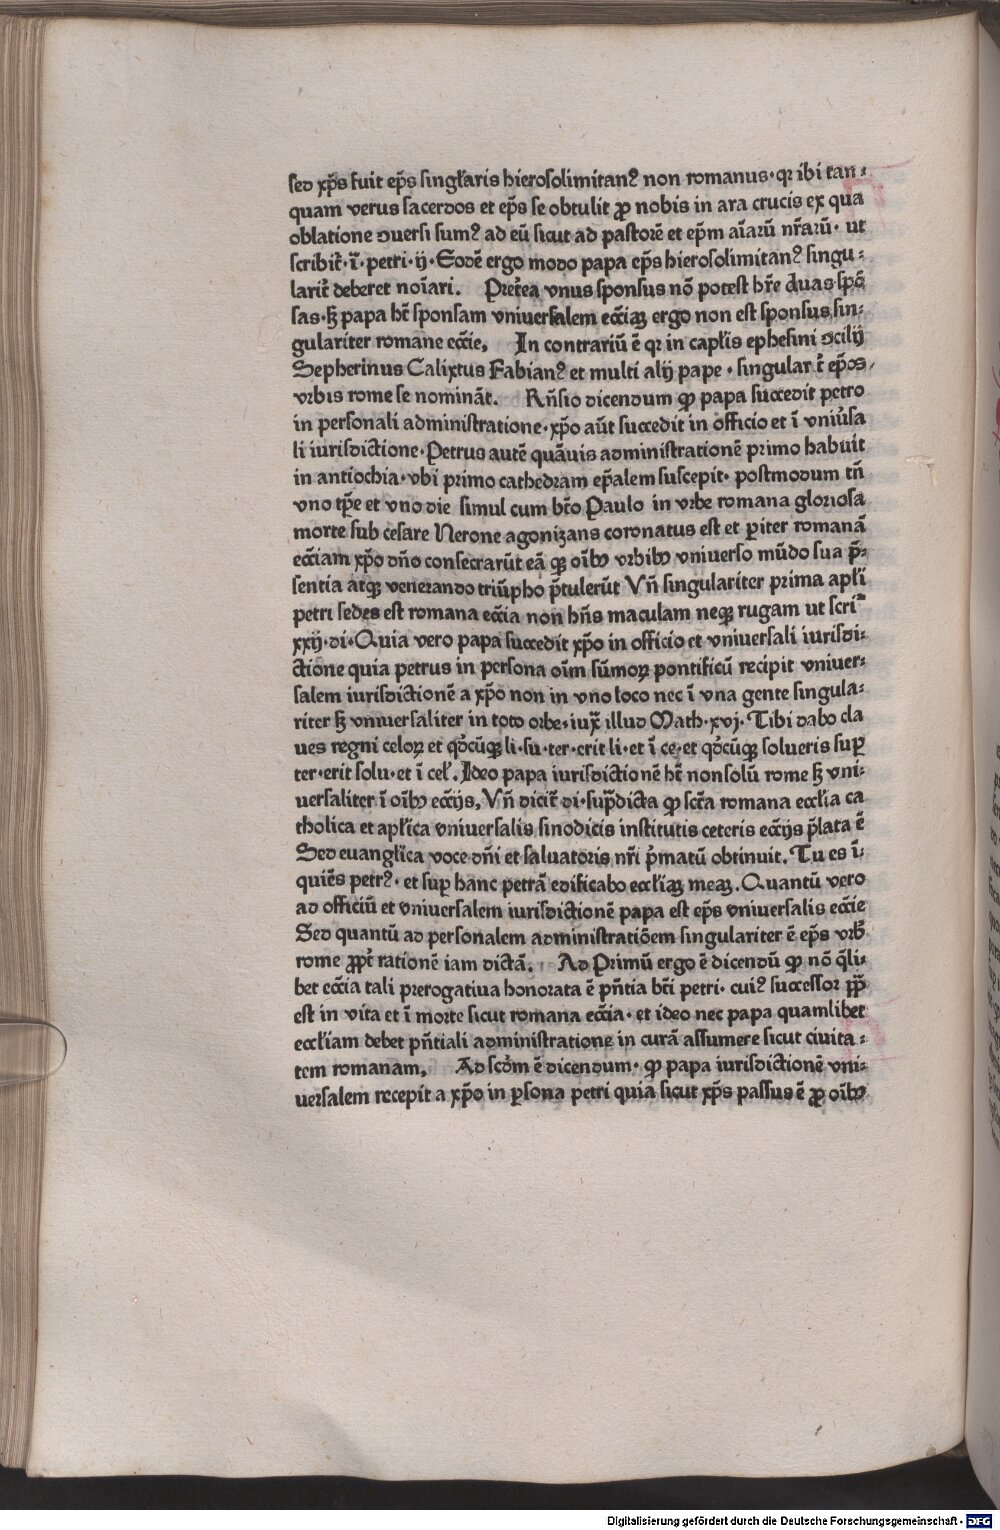 sed xp̄s fuit ep̄s singl̄aris hierosolimitanꝰ non romanus· qꝛ ibi tan⸗
quam verus sacerdos et ep̄s se obtulit ꝓ nobis in ara crucis ex qua
oblatione ↄuersi sumꝰ ad eū sicut ad pastorē et ep̄m aīarū nr̄arū· ut
scribit᷑·ī· petri·ij·Eodē ergo modo papa ep̄s hierosolimitanꝰ singu⸗
larit᷑ deberet noīari. Pret᷑ea vnus sponsus nō potest hr̄e duas spō
sas·sꝫ papa hꝫ sponsam vniuersalem eccīaꝫ ergo non est sponsus sin⸗
gulariter romane ecc̄ie. In contrariū ē qꝛ in capl̄is ephesini ↄcilij
Sepherinus Calixtus Fabianꝰ et multi alij pape · singulart᷑ ep̄os
vrbis rome se nomināt. Rn̄sio dicendum ꝙ papa succedit petro
in personali administratione·xp̄o aūt succedit in officio et ī vniu᷑sa
li iurisdictione·Petrus autē quāuis administrationē primo habuit
in antiochia·vbi primo cathedram ep̄alem suscepit· postmodum tn̄
vno tp̄e et vno die simul cum bt̄o Paulo in vrbe romana gloriosa
morte sub cesare Nerone agonizans coronatus est et ꝑiter romanā
ecc̄iam xp̄o dn̄o consecrarūt eā qꝫ oībꝰ vrbibꝰ vniuerso mūdo sua p̄⸗
sentia atqꝫ venerando triūpho p̄tulerūt Vn̄ singulariter prima apl̄i
petri sedes est romana ecc̄ia non hn̄s maculam neqꝫ rugam ut scri᷑
xxij·di·Quia vero papa succedit xp̄o in officio et vniuersali iurisdi⸗
ctione quia petrus in persona oīm sūmoꝝ pontificū recipit vniuer⸗
salem iurisdictionē a xp̄o non in vno loco nec ī vna gente singula⸗
riter sꝫ vniuersaliter in toto orbe·iux̄ illud Math·xvj·Tibi dabo cla
ues regni celoꝝ et qd᷑cūqꝫ li·su·ter·erit li·et ī ce·et qd᷑cūqꝫ solueris suꝑ
ter·erit solu·et ī cel̄. Ideo papa iurisdictionē hꝫ non solū rome sꝫ vni⸗
uersaliter ī oībꝰ ecc̄ijs. Vn̄ dicit᷑ di·sup̄dicta ꝙ sc̄ta romana eccl̄ia ca
tholica et apl̄ica vniuersalis sinodicis institutis ceteris ecc̄ijs p̄lata ē
Sed euangl̄ica voce dn̄i et saluatoris nr̄i p᷑matū obtinuit. Tu es ī⸗
quiēs petrꝰ·et suꝑ hanc petrā edificabo eccl̄iaꝫ meaꝫ. Quantū vero
ad officiū et vniuersalem iurisdictionē papa est ep̄s vniuersalis ecc̄ie
Sed quantū ad personalem administratiōem singulariter ē ep̄s vrb᷑
rome ꝓpt᷑ rationē iam dictā. Ad Primū ergo ē dicendū ꝙ nō q̄li⸗
bet ecc̄ia tali prerogatiua honorata ē pn̄tia bt̄i petri· cuiꝰ successor pp̄
est in vita et ī morte sicut romana ecc̄ia· et ideo nec papa quamlibet
eccl̄iam debet pn̄tiali administratione in curā assumere sicut ciuita⸗
tem romanam. Ad sc̄dm ē dicendum· ꝙ papa iurisdictionē vni⸗
uersalem recepit a xp̄o in ꝑsona petri quia sicut xp̄s passus ē ꝓ oībꝰ
Digitalisierung gefördert durch die Deutsche Forschungsgemeinschaft - DFG